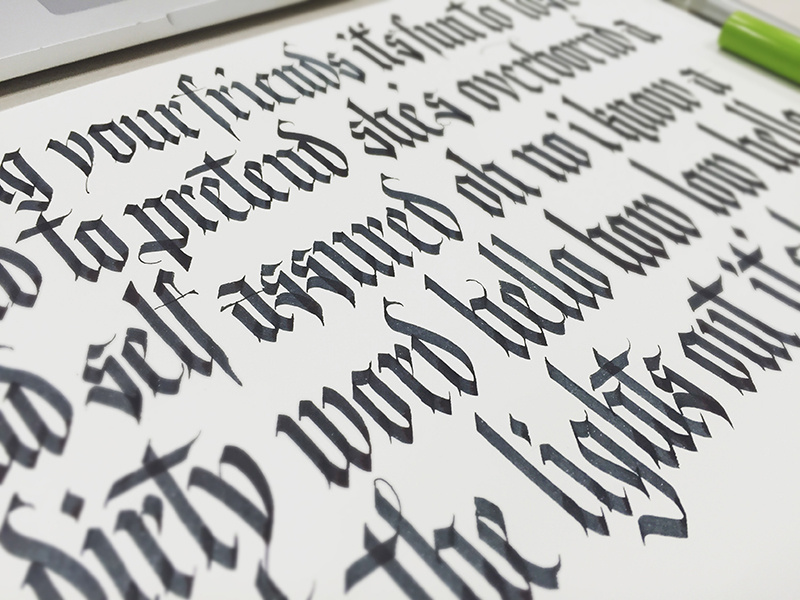 g your friends it's fun to lose
d to pretend she's overbored a
nd self assured oh no i know a
dirty word hello how low hello
the lights out it's